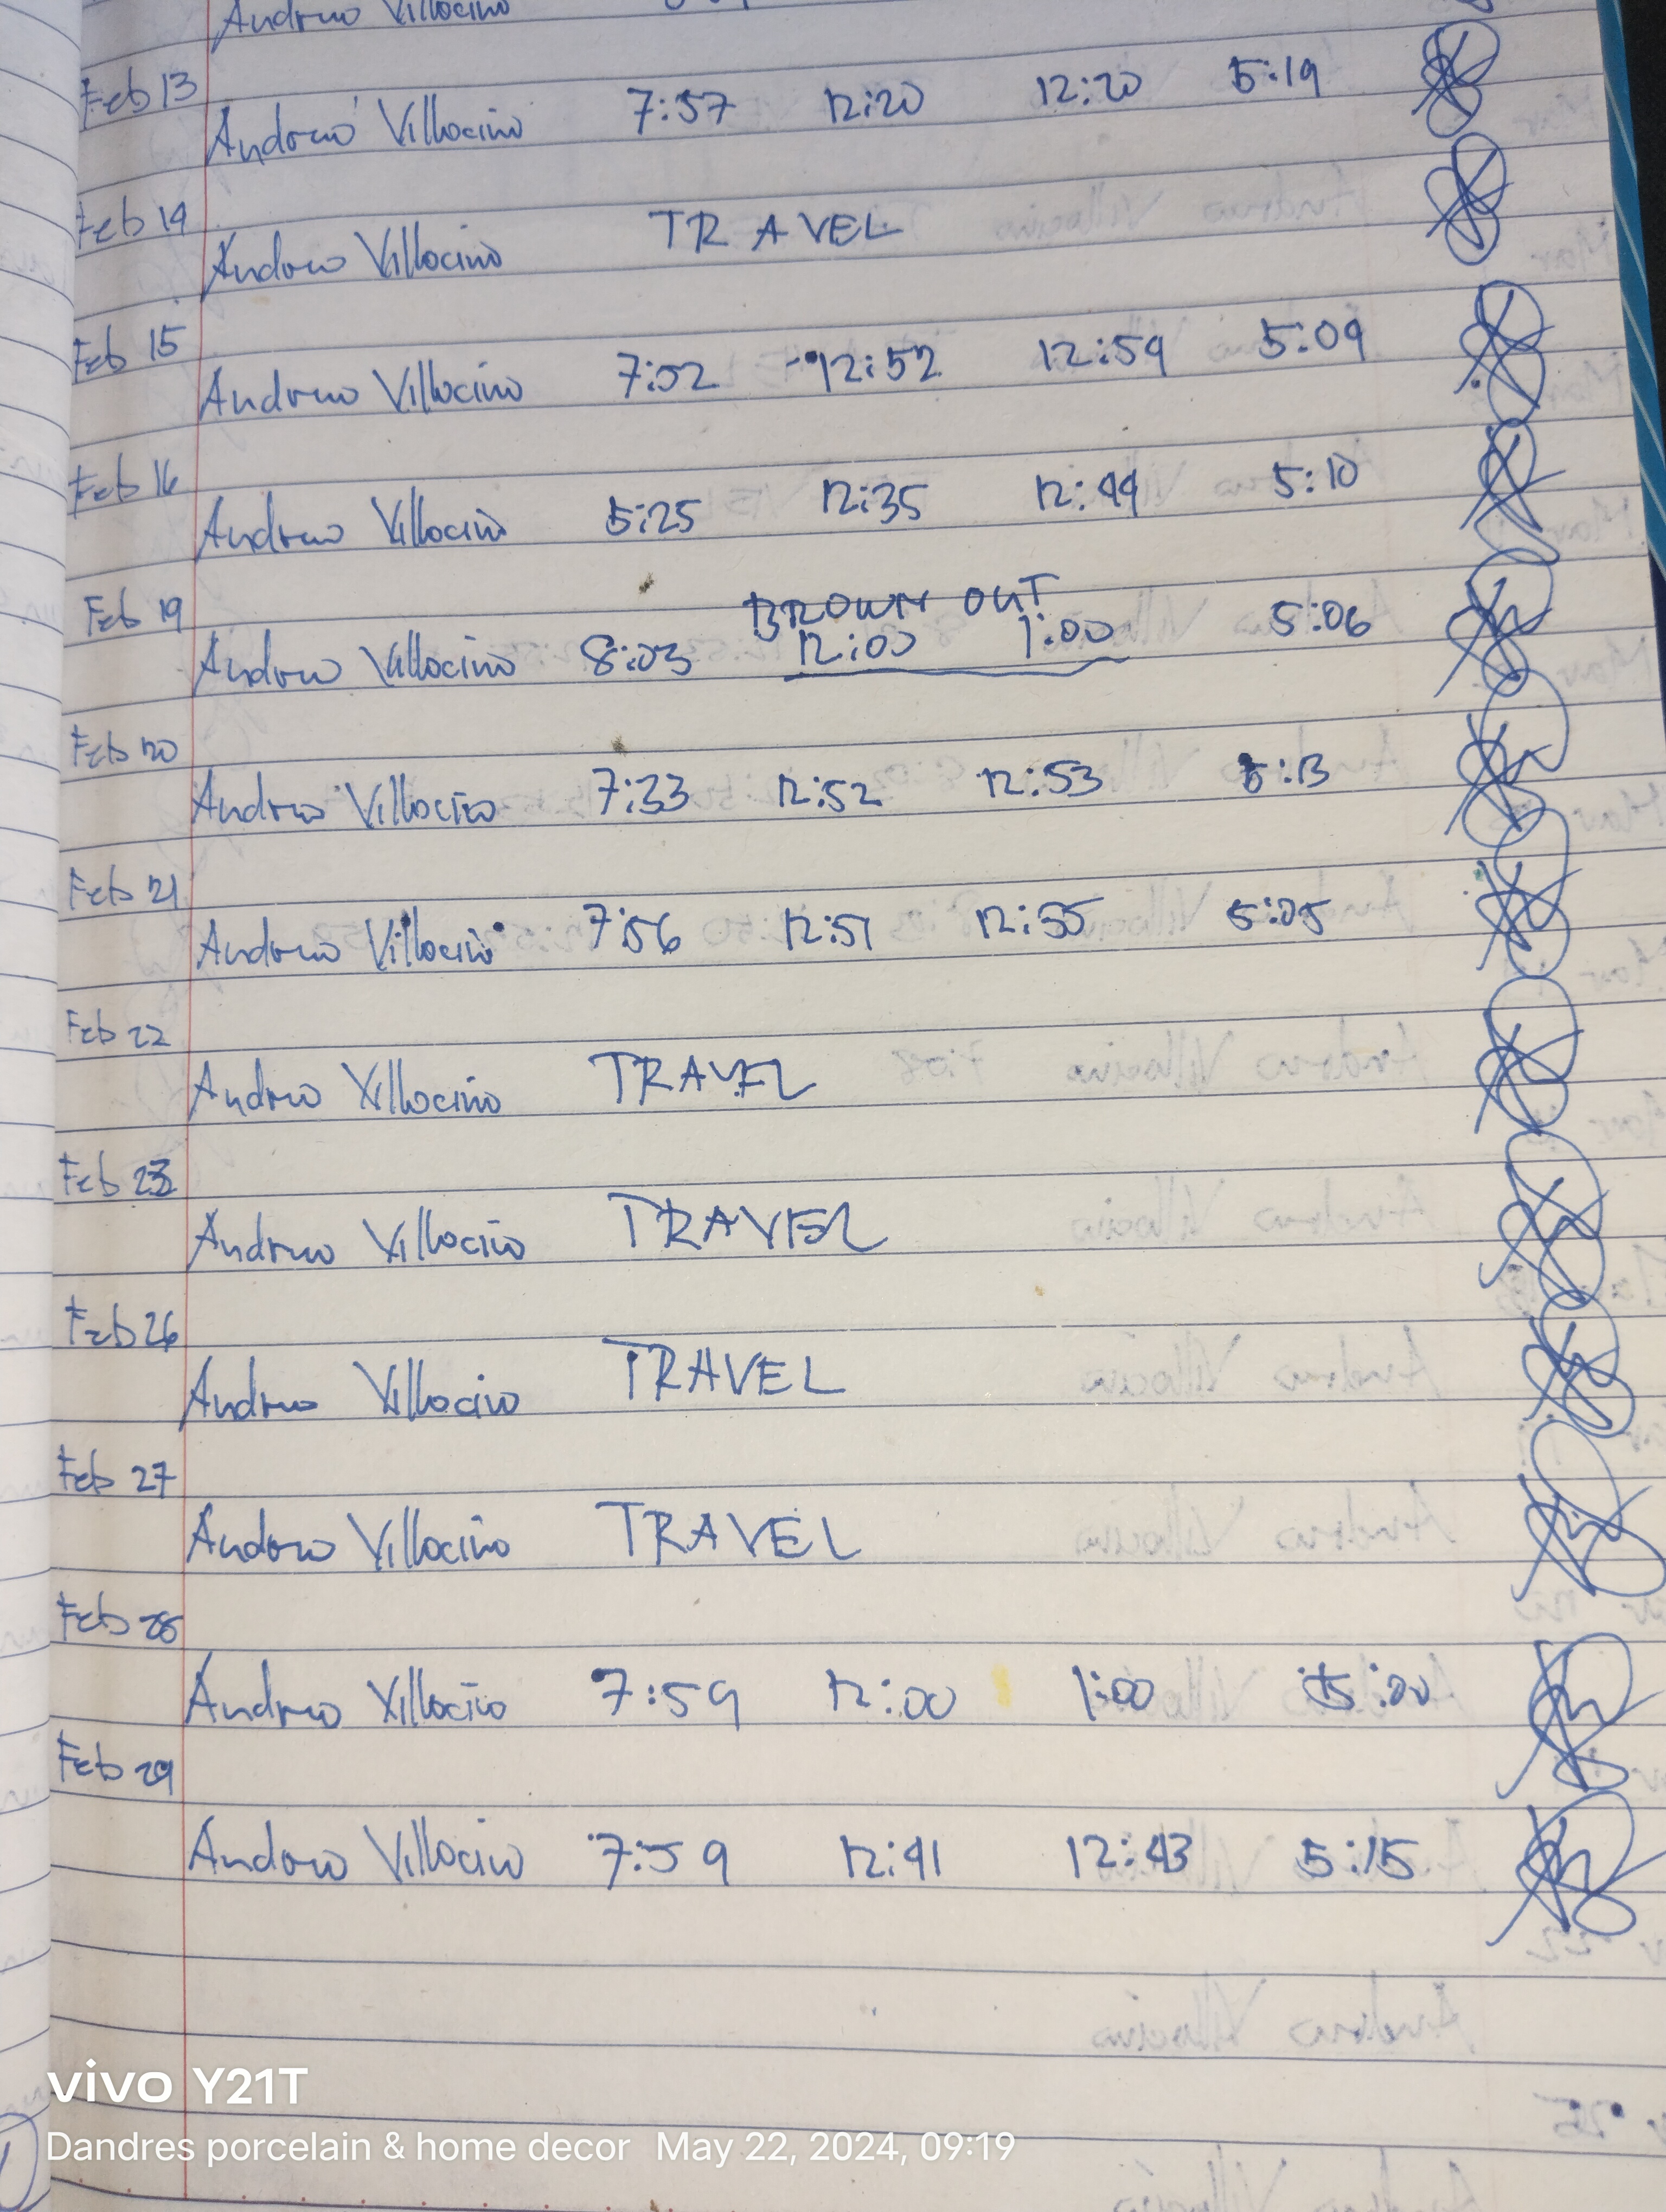 Andrew Villocino
Feb 13
Andrew Villocino 7:57 12:20 12:20 5:19
Feb 14
Andrew Villocino TRAVEL
Feb 15
Andrew Villocino 7:52 12:52 12:59 5:09
Feb 16
Andrew Villocino 5:25 12:35 12:44 5:10
Feb 19
BROWN OUT
Andrew Villocino 8:03 12:00 1:00 5:06
Feb 20
Andrew Villocino 7:33 12:52 12:53 5:13
Feb 21
Andrew Villocino 7:56 12:51 12:55 5:05
Feb 22
Andrew Villocino TRAVEL
Feb 23
Andrew Villocino TRAVEL
Feb 26
Andrew Villocino TRAVEL
Feb 27
Andrew Villocino TRAVEL
Feb 28
Andrew Villocino 7:59 12:00 1:00 5:00
Feb 29
Andrew Villocino 7:59 12:41 12:43 5:15
vivo Y21T
Dandres porcelain & home decor May 22, 2024, 09:19